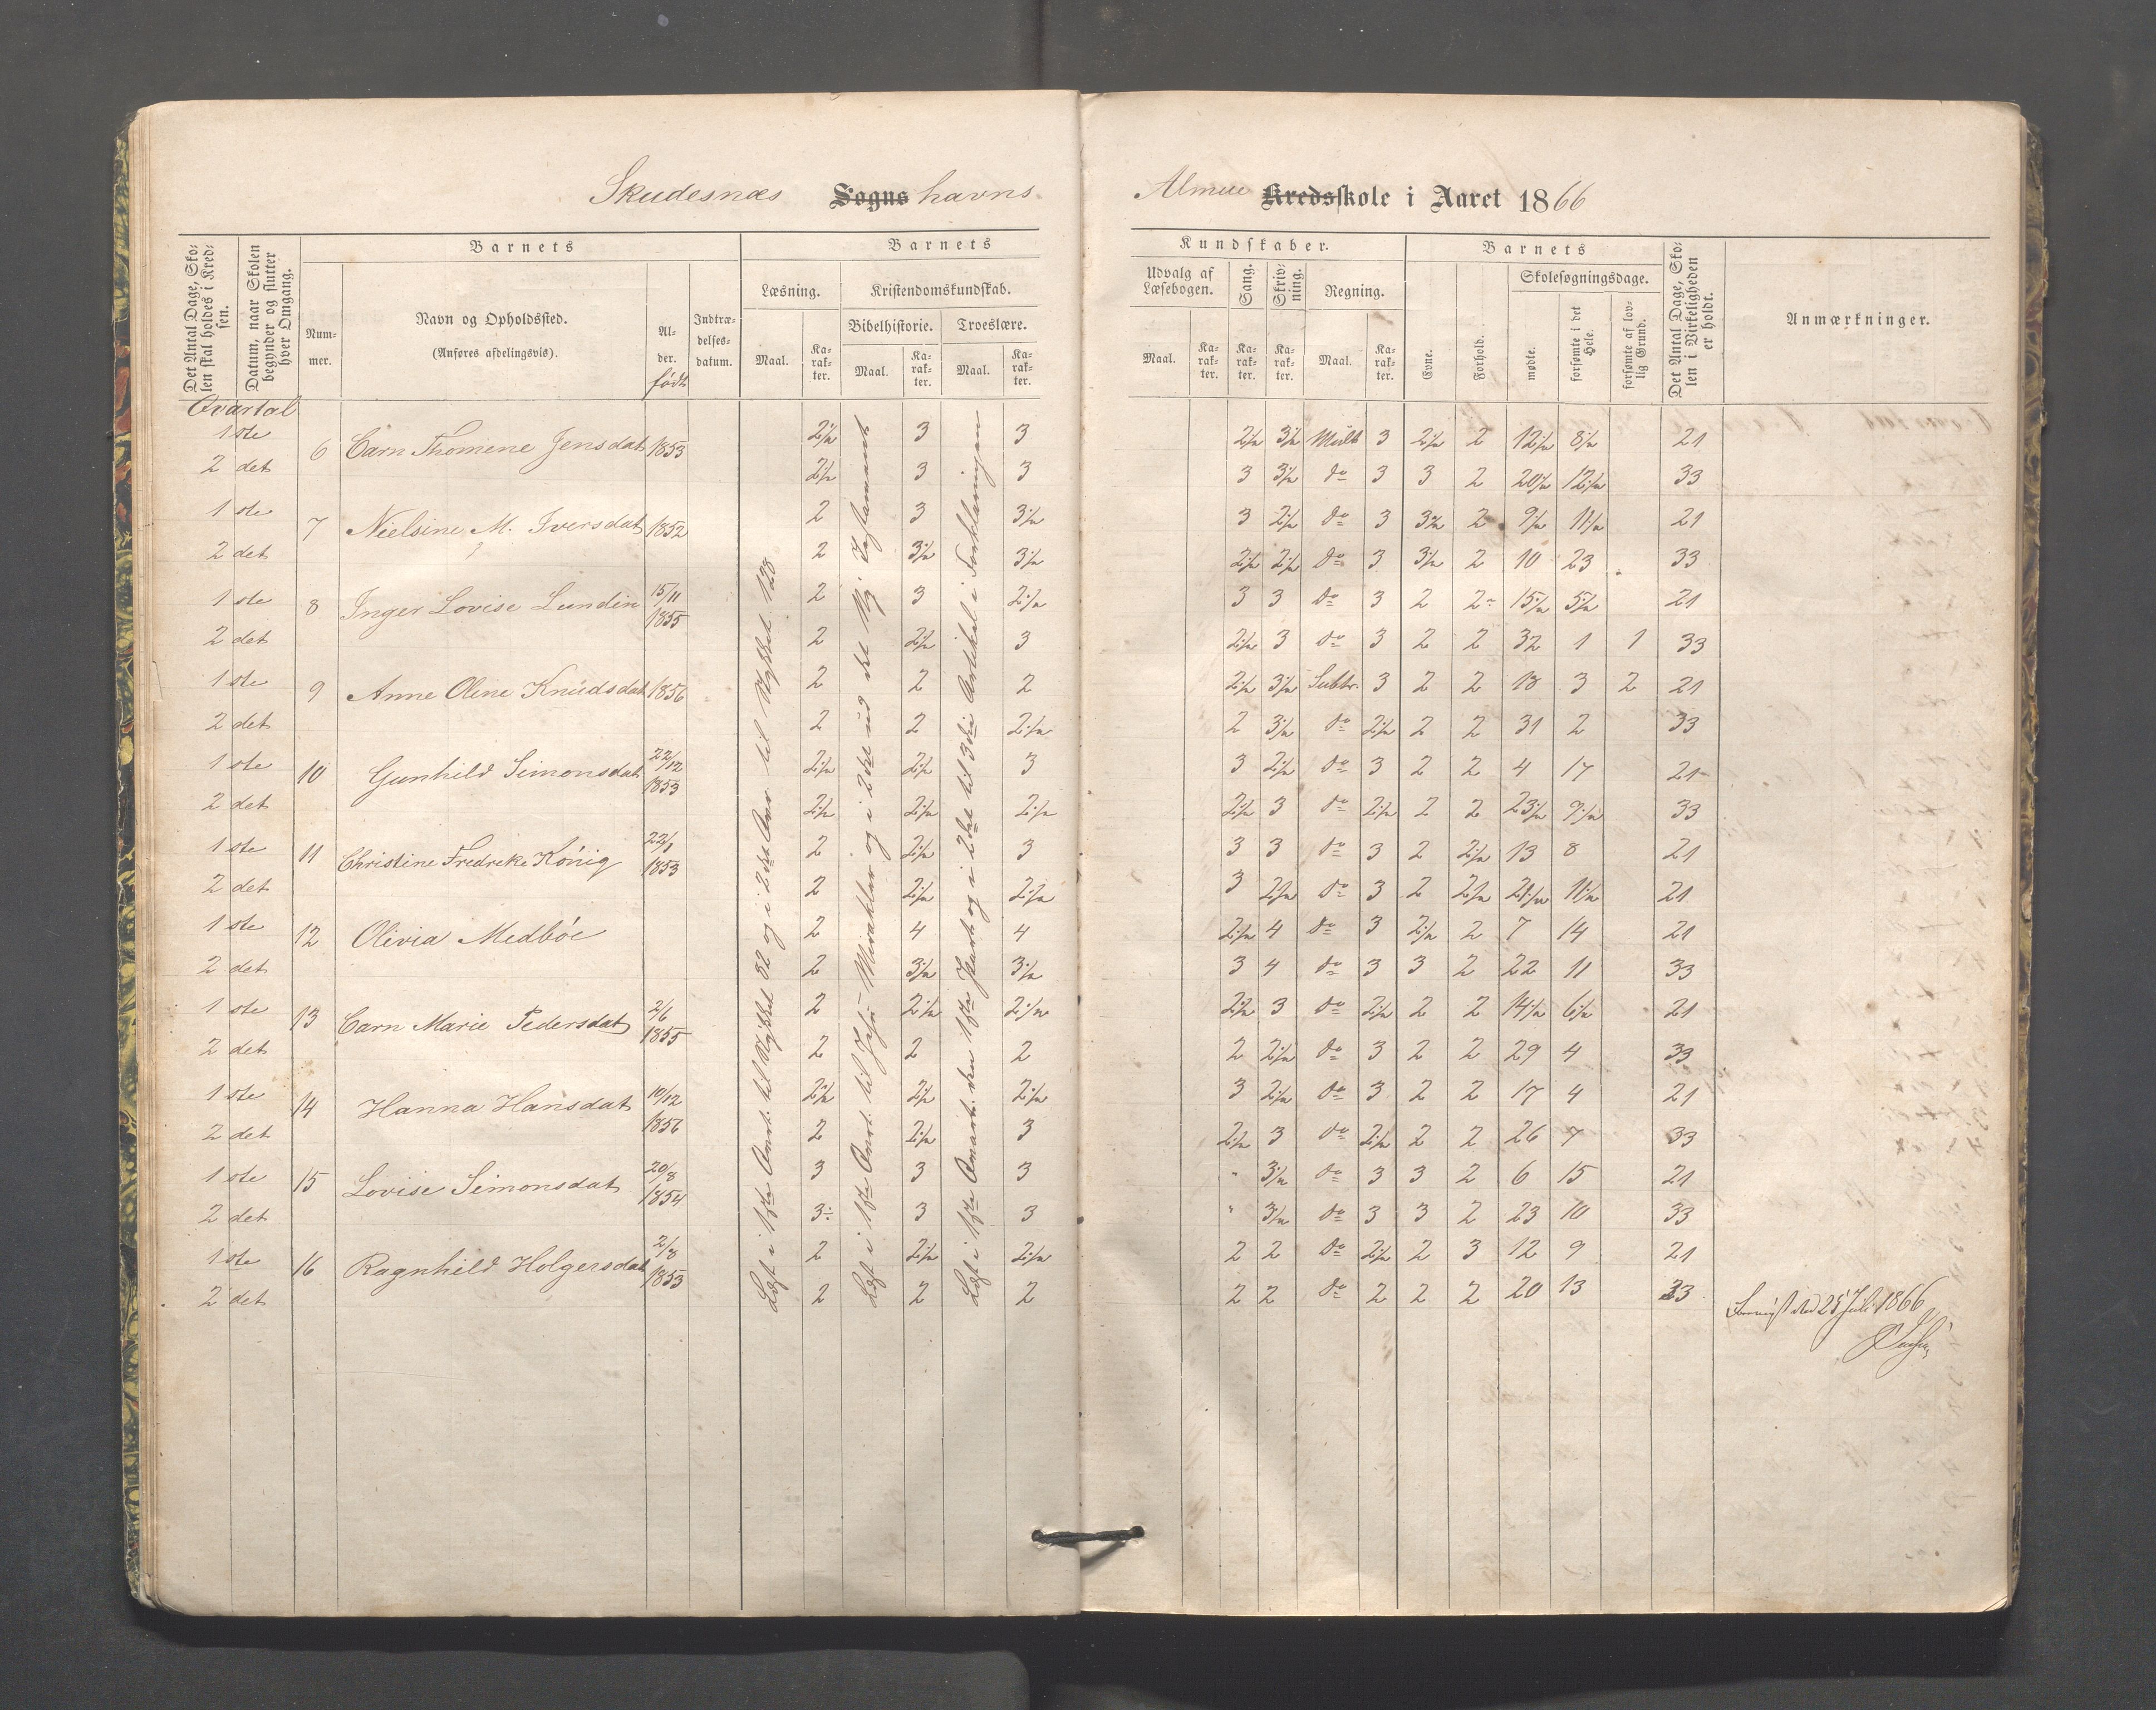 Skudesnæs Sogns havns
Almue Kredsskole i Aaret 1866
Det Antal Dage, Skolen skal holdes i Kredsen.
Datum, naar Skolen begynder og slutter hver Omgang.
Barnets
Nummer.
Navn og Opholdssted.
(Anføres afdelingsvis).
Alder.
født
Indtrædelsesdatum.
Barnets
Læsning.
Kristendomskundskab.
Bibelhistorie. Troeslære.
Maal. Karakter. Maal. Karakter. Maal. Karakter.
Kundskaber.
Udvalg af Læsebogen.
Sang. Skrivning. Regning.
Maal. Karakter. Karakter. Karakter. Maal. Karakter.
Barnets
Evne. Forhold.
Skolesøgningsdage.
mødte. forsømte i det Hele. forsømte af lovlig Grund.
Det Antal Dage, Skolen i Virkeligheden er holdt.
Anmærkninger.
Qvartal
1 ste 6 Carn Thomine Jensdat 1853 2½ 3 3 2½ 3½ Mult 3 2½ 2 12½ 8½ 21
2 det 2½ 3 3 3 3½ do 3 3 2 20½ 12½ 33
1 ste 7 Nielsine M. Iversdat 1852 2 3 3½ 3 2½ do 3 3½ 2 9½ 11½ 21
2 det 2 3½ 3½ 2½ 2½ do 3 3½ 2 10 23 33
1 ste 8 Inger Lovise Lundin 15/11 1855 2 3 2½ 3 3 do 3 2 2 15½ 5½ 21
2 det 2 2½ 3 2½ 3 do 3 2 2 32 1 1 33
1 ste 9 Anne Olene Knudsdat 1856 2 2 2 2½ 3½ Subtr. 3 2 2 18 3 2 21
2 det 2 2 2½ 2 3½ do 2½ 2 2 31 2 33
1 ste 10 Gunhild Simonsdat 22/12 1853 2½ 2½ 3 3 2½ do 3 2 2 4 17 21
2 det 2½ 2½ 2½ 2½ 3 do 2½ 2 2 23½ 9½ 33
1 ste 11 Christine Fredreke König 22/1 1853 2 2½ 3 3 3 do 3 2 2½ 13 8 21
2 det 2 2½ 2½ 3 2½ do 3 2 2½ 21½ 11½ 21
1 ste 12 Olivia Medböe 2 4 4 2½ 4 do 3 2½ 2 7 14 21
2 det 2 3½ 3½ 3 4 do 3 3 2 22 11 33
1 ste 13 Carn Marie Pedersdat 2/6 1855 2 2½ 2½ 2½ 3 do 2½ 2 2 14½ 6½ 21
2 det 2 2 2 2 2½ do 3 2 2 29 4 33
1 ste 14 Hanna Hansdat 10/12 1856 2½ 2½ 2½ 3 2½ do 3 2 2 17 4 21
2 det 2 2½ 3 2½ 3 do 2½ 2 2 26 7 33
1 ste 15 Lovise Simonsdat 20/8 1854 3 3 3 " 3½ do 3 3 2 6 15 21
2 det 3 3 3 " 3½ do 3 3 2 23 10 33
1 ste 16 Ragnhild Holgersdat 2/8 1853 2 2½ 2½ 2 2 do 2½ 2 3 12 9 21
2 det 2 2 2 2 2 do 2 2 2 20 13 33
Læst i 1ste til Stykket 82 og i 2det til Stykket 123
Læst i 1ste til Jesu Mirakler og i 2det ud det Ny Testamente
Læst i 1ste den 1ste Part og i 2det til 3die Artikel i Forklaringen
25 Juli 1866